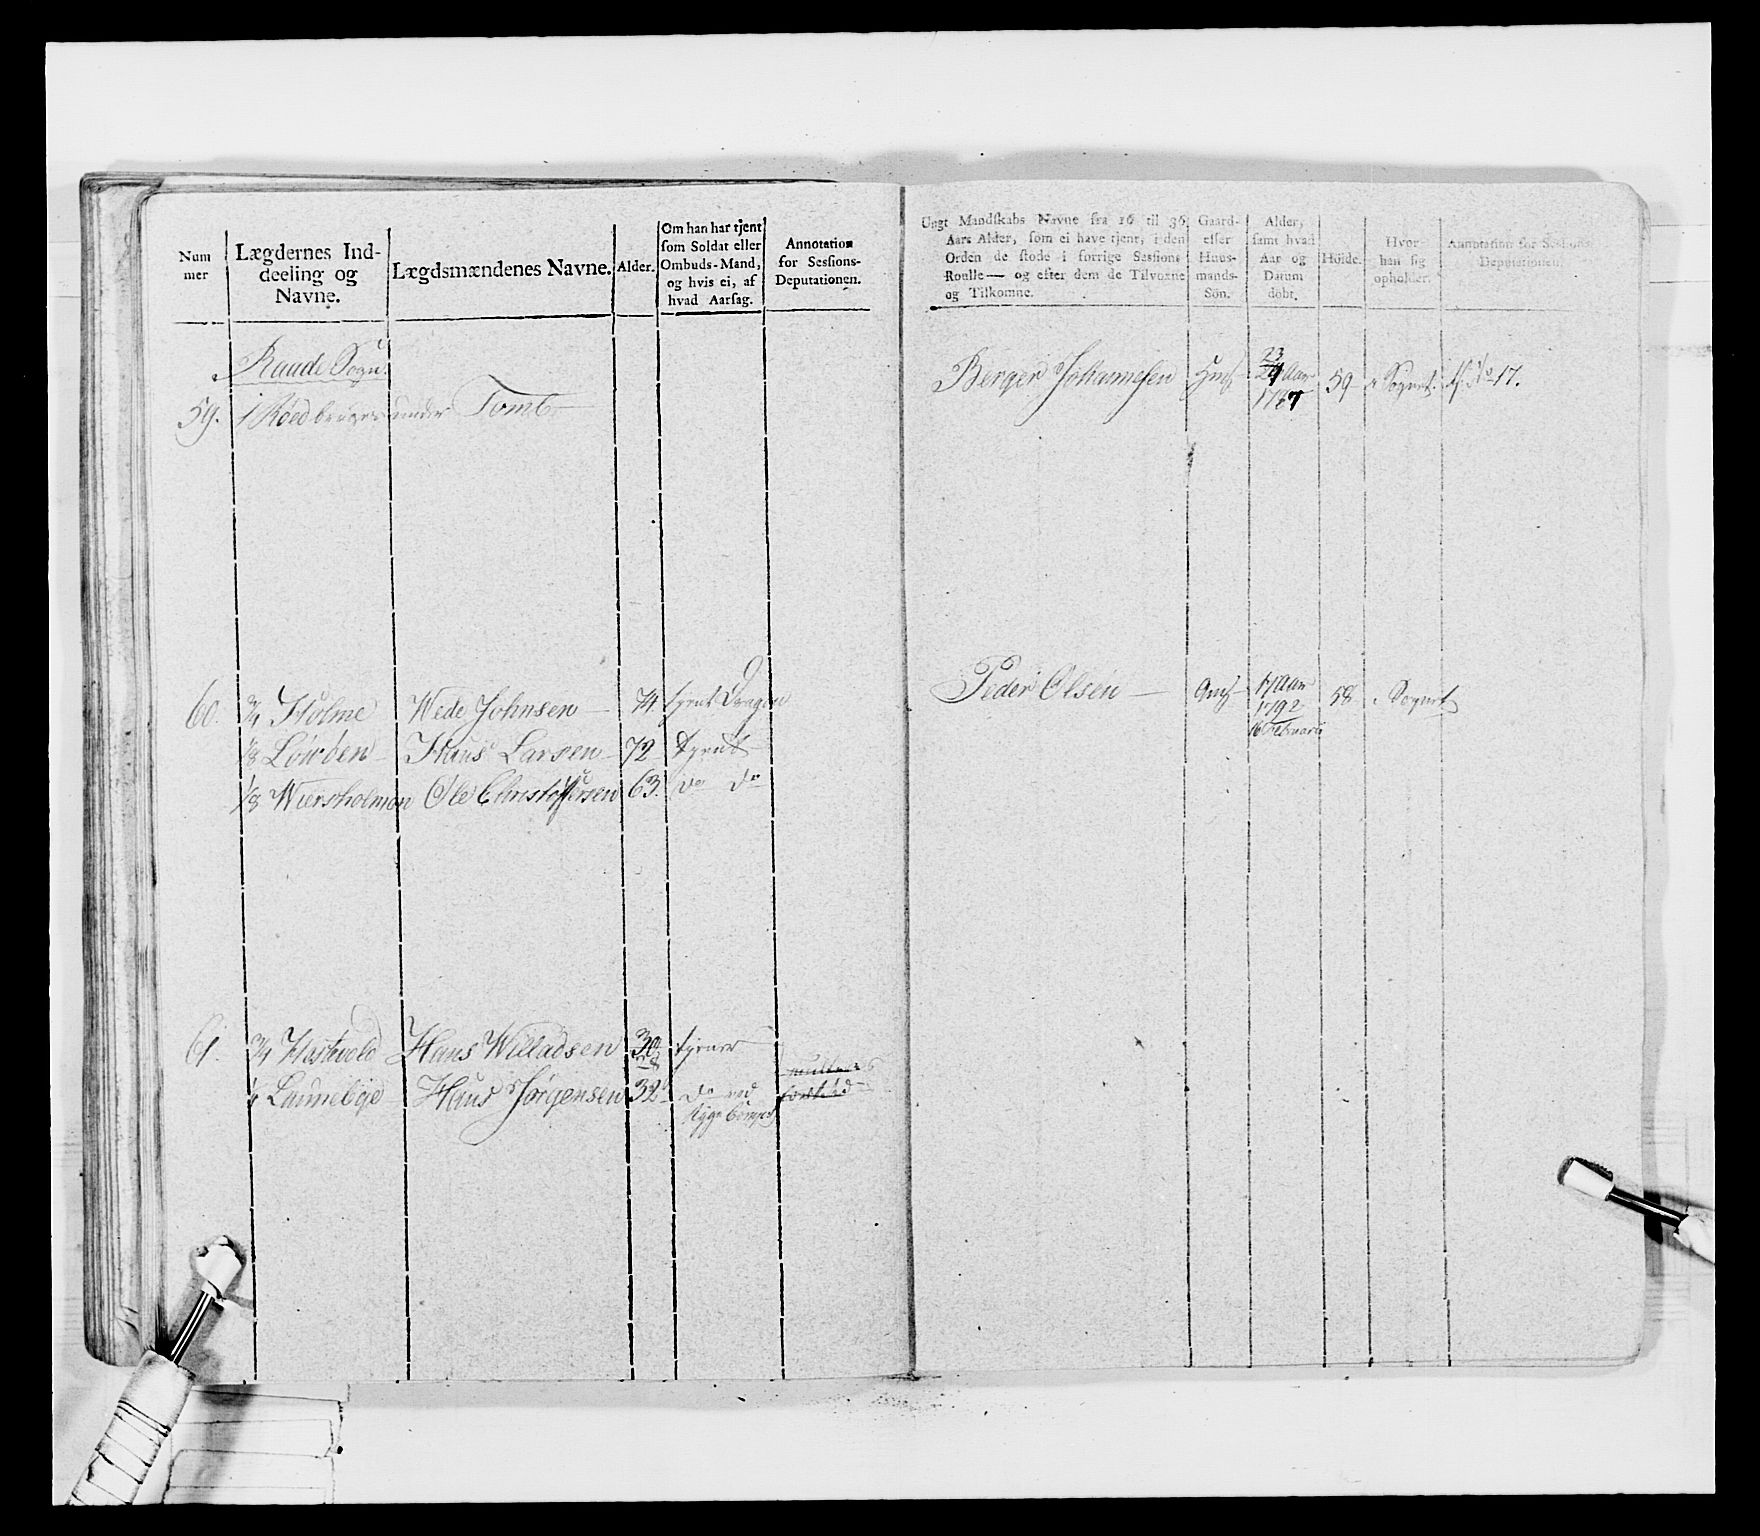 Num
mer
Lægdernes Ind-
deeling og
Navne.
Lægdsmændenes Navne.
Alder.
Om han har tjent
som Soldat eller
Ombuds-Mand,
og hvis ei, af
hvad Aarsag.
Annotation
for Sessions-
Deputationen.
Raade Sogn.
59. 1 Röed bruges under Tomb
60. 3/4 Holme Wede Johnsen 74 tjent Dragon
1/8 Löwöen Hans Larsen 72 tjent
1/8 Wiersholmen Ole Christophersen 63. do do
61. 3/4 Hastvold Hans Willadsen 30 tjener
28
1/4 Lannebøje Hans Jörgensen 32 do ved
Ungt Mandskabs Navne fra 16 til 36
Aars Alder, som ei have tjent, i den
Orden de stode i forrige Sessions
Roulle — og efter dem de Tilvoxne
og Tilkomne.
Gaard-
eller
Huus-
mands-
Sön.
Alder,
samt hvad
Aar og
Datum
döbt.
Höide.
Hvor-
han sig
opholder.
Annotation for Sessions-
Deputationen.
23
Berger Johannesen 24 Aar 59 i Sognet No 17.
1787
Peder Olsen — 17 Aar 58 i Sognet
1792
16 Februari